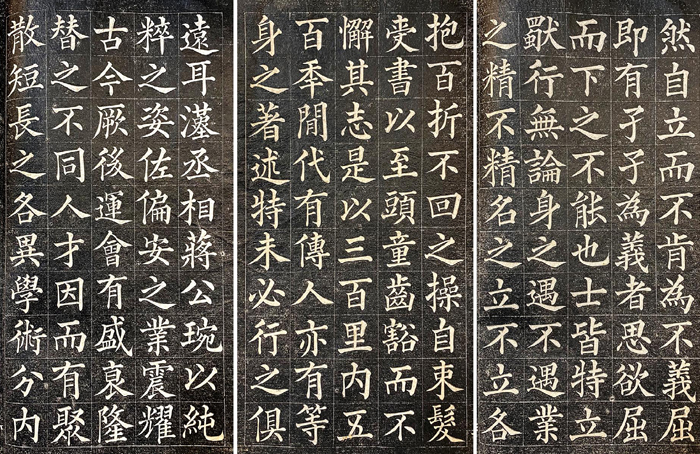 然自立而不肯為不義屈
即有孑孑為義者思欲屈
而下之不能也士皆特立
獨行無論身之遇不遇業
之精不精名之立不立各
抱百折不回之操自束髮
受書以至頭童齒豁而不
懈其志是以三百里內五
百年間代有傳人亦有等
身之著述特未必行之俱
遠耳漢丞相蔣公琬以純
粹之姿佐偏安之業震耀
古今厥後運會有盛衰隆
替之不同人才因而有聚
散短長之各異學術分內